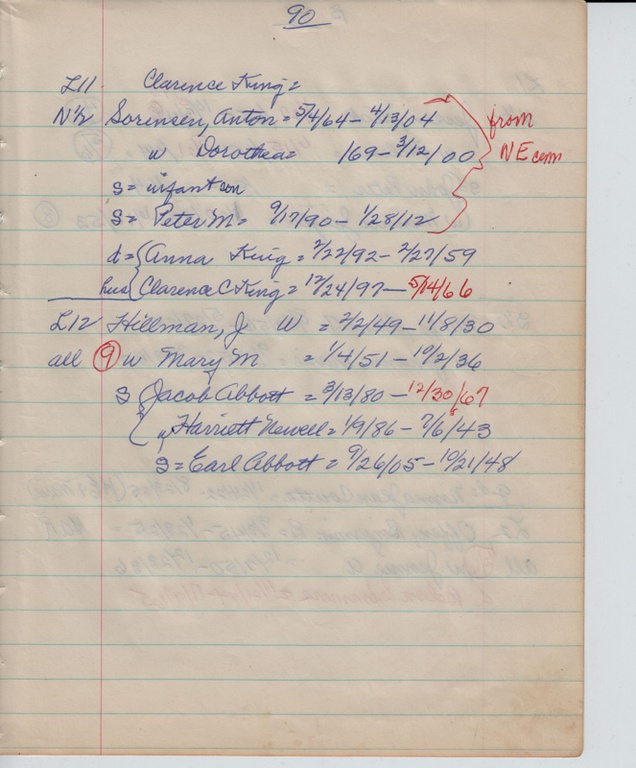 90
L11 Clarence King =
N½ Sorensen, Anton = 5/4/64 - 4/13/04 from
w Dorothea = /69 - 3/12/00 NE cem
s = infant son
s = Peter M = 9/17/90 - 1/28/12
d = Anna King = 2/22/92 - 2/27/59
hus Clarence C King = 12/24/97 - 5/14/66
L12 Hillman, J W = 2/2/49 - 11/8/30
all 9 w Mary M = 1/4/51 - 10/2/36
s Jacob Abbott = 3/13/80 - 12/30/67
w Harriett Newell = 1/9/86 - 7/6/43
s = Earl Abbott = 9/26/05 - 10/21/48